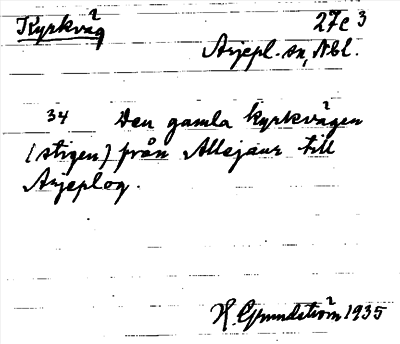 Kyrkväg 27c 3
Arjepl. sn, Nbl.
34 Den gamla kyrkvägen
(stigen) från Allejaur till
Arjeplog.
H. Grundström 1935